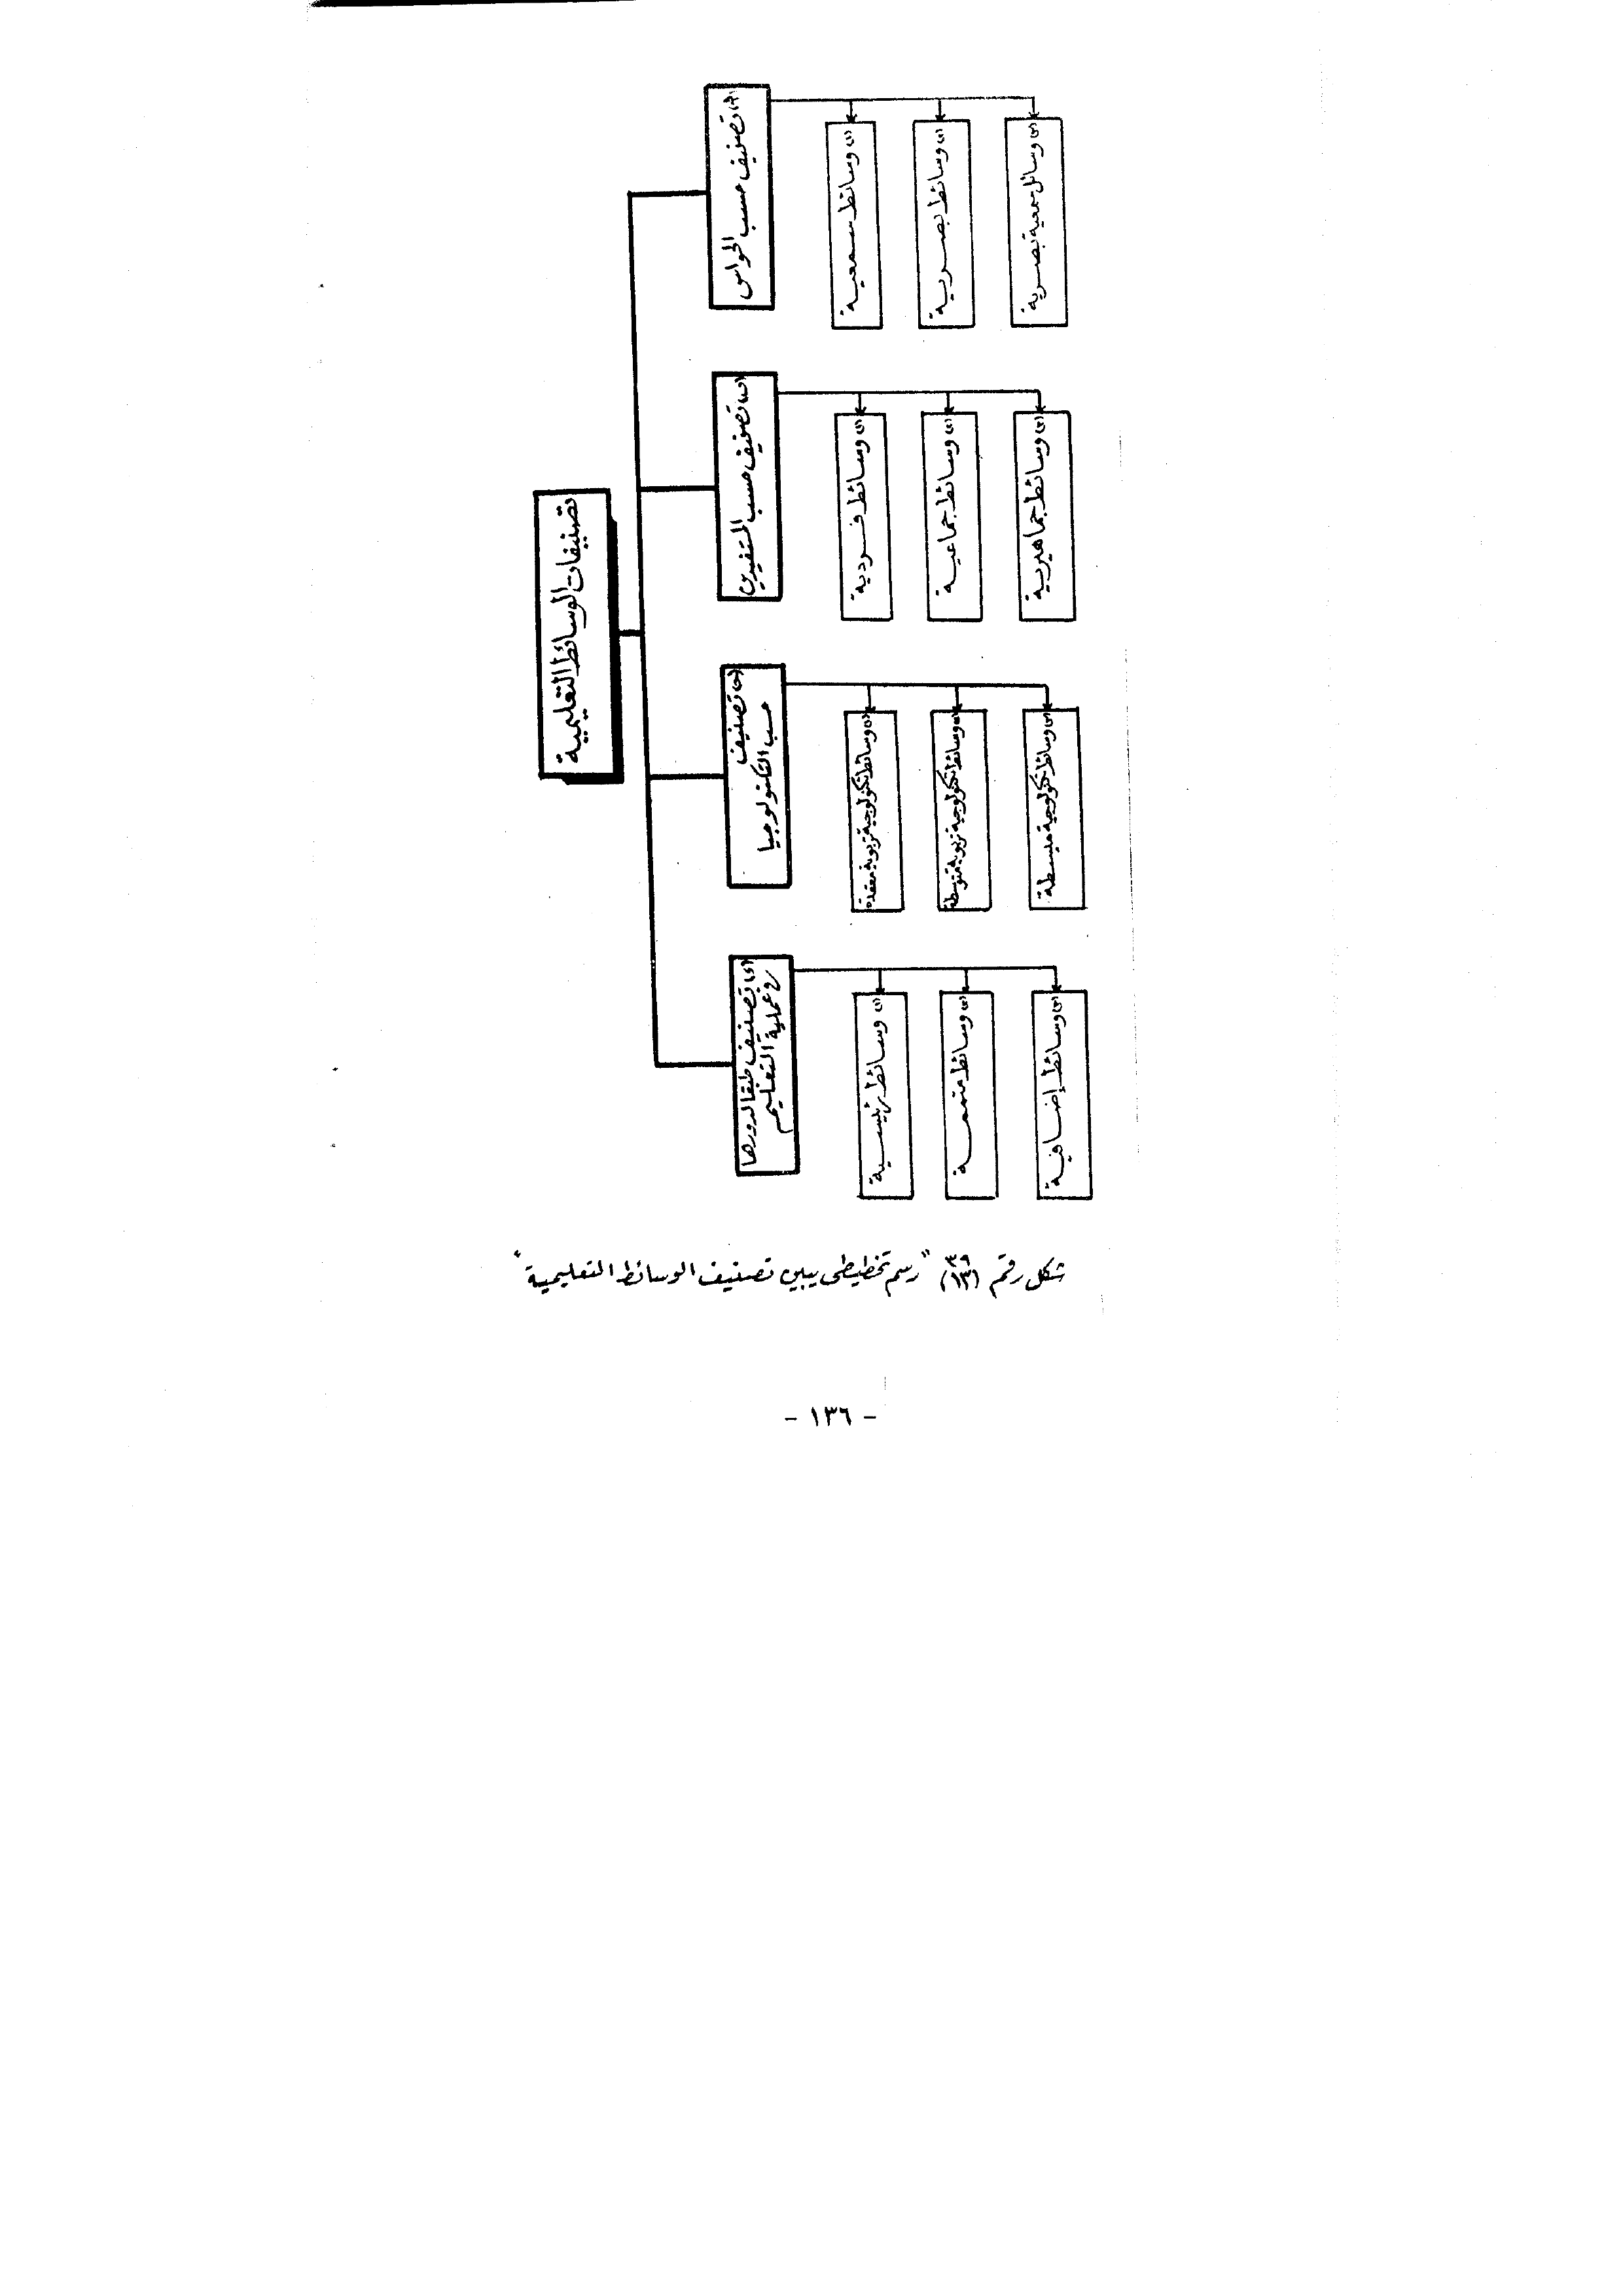 تصنيفات الوسائط التعليمية
(أ) تصنيف حسب الحواس
(١) وسائط سمعية
(٢) وسائط بصرية
(٣) وسائل سمعية بصرية
(ب) تصنيف حسب المستفيدين
(١) وسائط فردية
(٢) وسائط جماعية
(٣) وسائط جماهيرية
(ج) تصنيف
حسب التكنولوجيا
(١) وسائط تكنولوجية تربوية معقدة
(٢) وسائط تكنولوجية تربوية متوسطة
(٣) وسائط تكنولوجية مبسطة
(د) تصنيف طبقا لدورها
في عملية التعليم
(١) وسائط رئيسية
(٢) وسائط متممة
(٣) وسائط إضافية
شكل رقم "رسم تخطيطى يبين تصنيف الوسائط التعليمية"
- ١٣٦ -